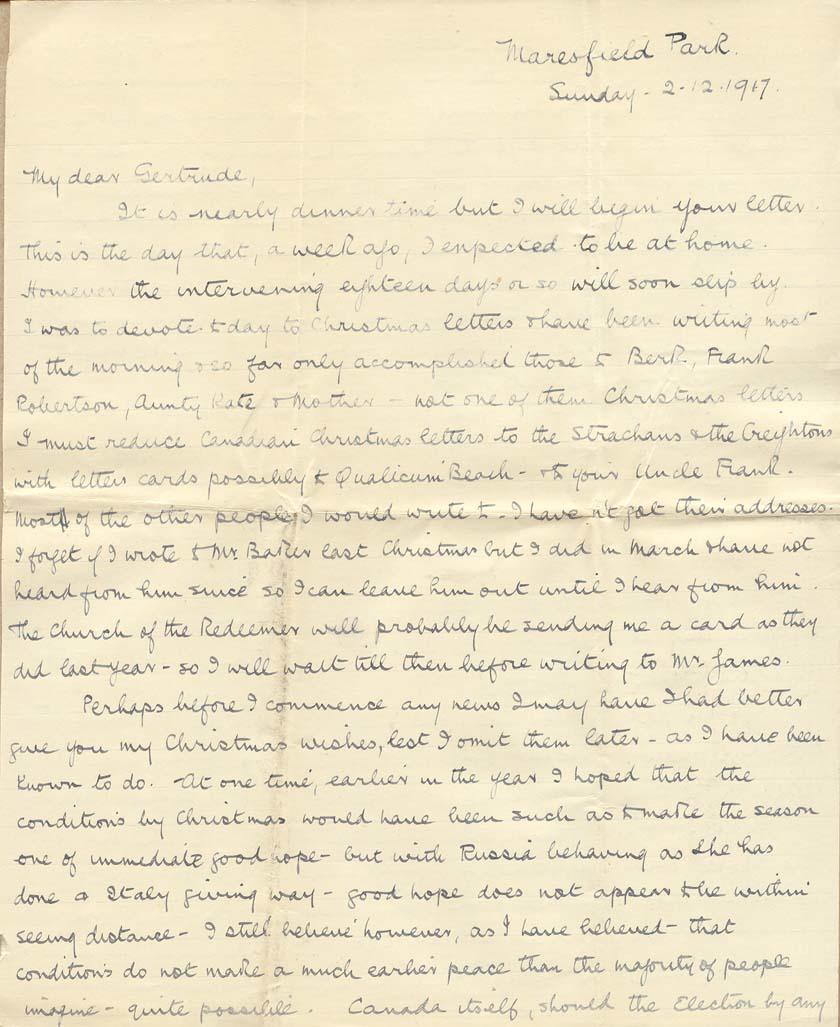 Maresfield Park.
Sunday - 2.12.1917.
My dear Gertrude,
It is nearly dinner time but I will begin your letter.
This is the day that, a week ago, I expected to be at home.
However the intervening eighteen days or so will soon slip by.
I was to devote to day to Christmas letters & have been writing most
of the morning & so far only accomplished those to Berk, Frank
Robertson, Aunty Kate & Mother - not one of them Christmas letters
I must reduce Canadian Christmas letters to the Strachans & the Creightons
with letters cards possibly to Qualicum Beach - & to your Uncle Frank.
Most of the other people I would write to - I have n't got their addresses.
I forget if I wrote to Mr. Baker last Christmas but I did in March & have not
heard from him since so I can leave him out until I hear from him.
The Church of the Redeemer will probably be sending me a card as they
did last year - so I will wait till then before writing to Mr. James.
Perhaps before I commence any news I may have I had better
give you my Christmas wishes, lest I omit them later - as I have been
known to do. At one time, earlier in the year I hoped that the
conditions by Christmas would have been such as to make the season
one of immediate good hope - but with Russia behaving as she has
done & Italy giving way - good hope does not appear to be within
seeing distance - I still believe however, as I have believed - that
conditions do not make a much earlier peace than the majority of people
imagine - quite possible. Canada itself, should the Election by any